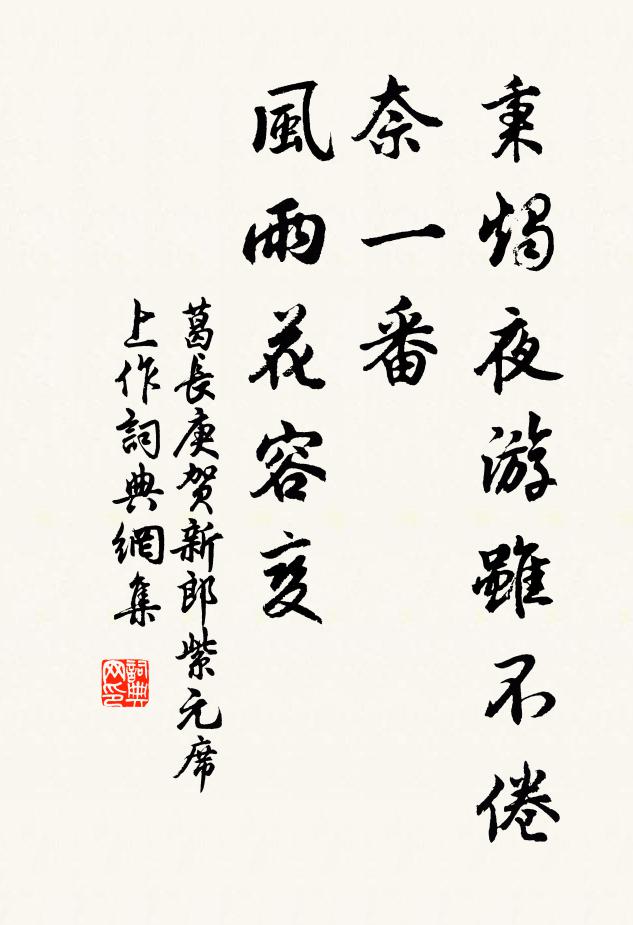 秉燭夜游雖不倦
奈一番
風雨花容变
葛長庚贺新郎紫元席
上作詞典網集
詞典网印